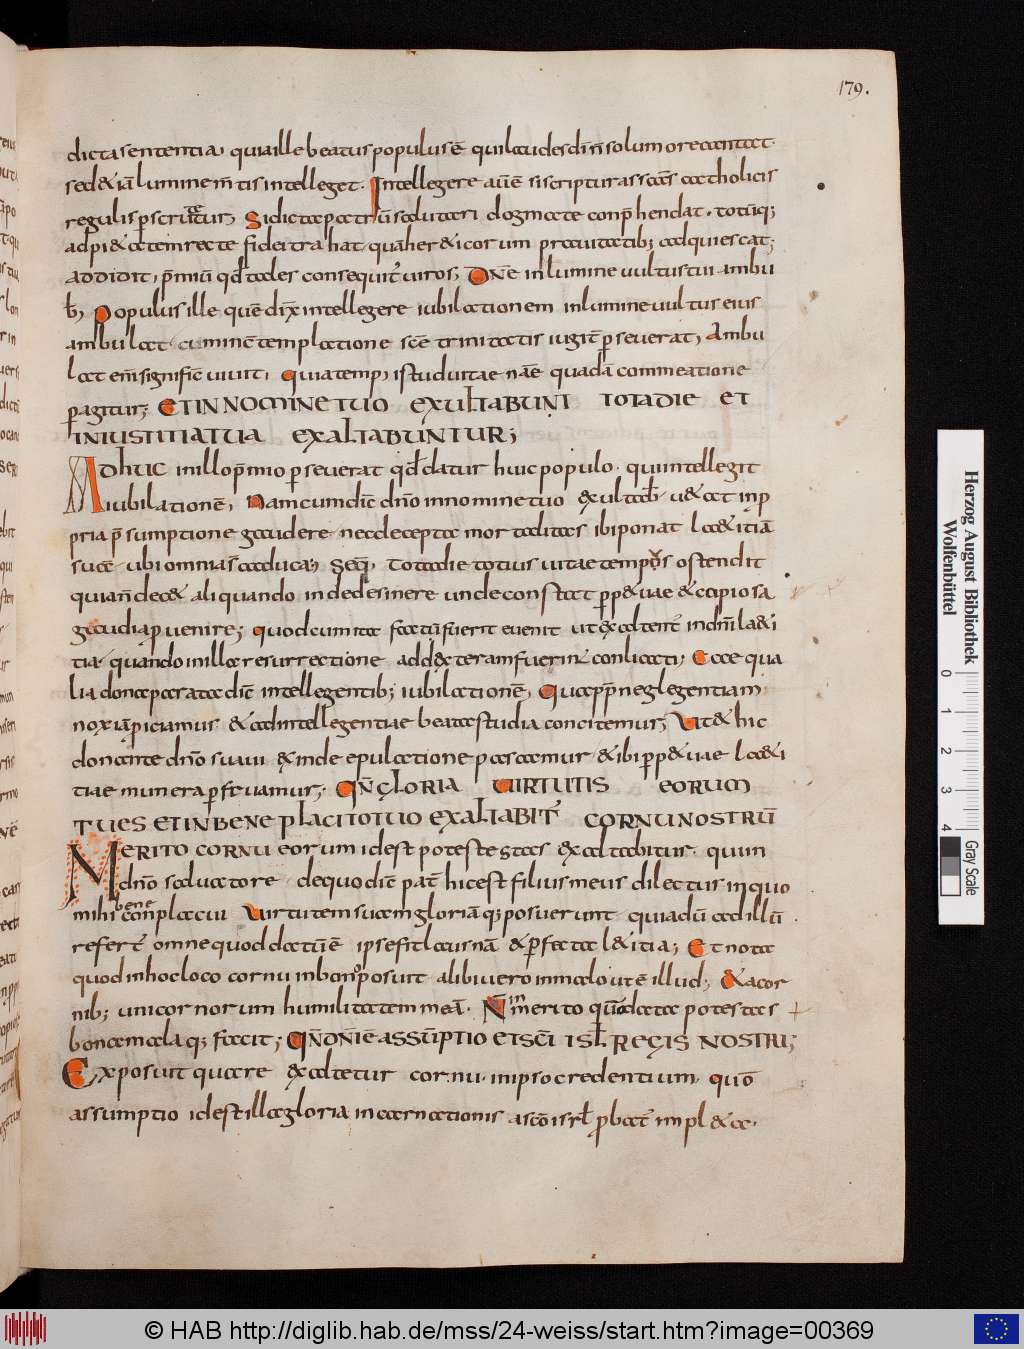 179.
dicta sententia, quia ille beatus populus ē qui laudes dn̄i n̄ solum ore cantat
sed & iā lumine m̄tis intelleget. Intellegere aūē si scripturas scās catholicis
regulis pscrutatur; Si dicta patrū salutari dogmate conp̄hendat. totūq;
ad pi&atem recte fidei trahat quā her&icorum prauitatib; adquiescat;
addidit, p̄miū qd̄ tales consequit̄ uiros; Dn̄e in lumine uultus tui ambu
b̄, Populus ille quē dix̄ intellegere iubilationem in lumine uultus eius
ambulat cum in ētemplatione scē trinitatis iugit̄ pseuerat, Ambu
lat em̄ significē uiuit, quia temp, istud uitae n̄āe quadā commeatione
pagitur; ET IN NOMINE TUO EXULTABUNT TOTA DIE ET
IN IUSTITIA TUA EXALTABUNTUR;
Adhuc in illo p̄mio pseuerat qd̄ datur huic populo. qui intellegit
iubilationē, Nam cum dic̄ dn̄o in nomine tuo exultab̄. u&at in p
pria p̄sumptione gaudere ne decepta mortalitas ibi ponat la&itiā
suā ubi omnia s̄ caduca; Seq̄, tota die totius uitae tempus ostendit
quia n̄ dec& aliquando inde desinere unde constat pp&uae & copiosa
gaudia puenire; quod cum ita factū fuerit euenit ut exaltent̄ in dn̄i la&i
tia quando in illa resurrectione ad dexteram fuerint conlocati; Ecce qua
lia dona parata dic̄ intellegentib; iubilationē, Quapp̄ neglegentiam
noxiā piciamus & ad intellegentiae beatae studia concitemur; Ut & hic
donante dn̄o suaui & inde epulatione pascamur & ibi pp&uae la&i
tiae munera pfruamur; QN̄ GLORIA UIRTUTIS EORUM
TU ES ET IN BENE PLACITO TUO EXALTABIT̄ CORNU NOSTRŪ
MERITO CORNU eorum id est potestas exaltabitur. qui in
dn̄o saluatore de quo dic̄ pat̄ hic est filius meus dilectus in quo
mihi bene conplacui Uirtutem suam gloriāq; posuerunt quia dū ad illū
refert̄ omne quod datū ē ipse fit laus n̄a & pfecta l&itia; Et nota
quod in hoc loco cornu in bono posuit alibi uero in malo ut ē illud; & a cor
nib; unicornorum humilitatem meā. N̄ inmerito
bona mala q; facit; QN̄ DN̄I Ē ASSŪPTIO ET SC̄I ISL̄ REGIS NOSTRI;
Exposuit quare exaltetur cornu in ipso credentium quō
assumptio id est illa gloria incarnationis a scō isrl̄ pbat̄ impl&a.
Herzog August Bibliothek
Wolfenbüttel
0 1 2 3 4
Gray Scale
© HAB http://diglib.hab.de/mss/24-weiss/start.htm?image=00369